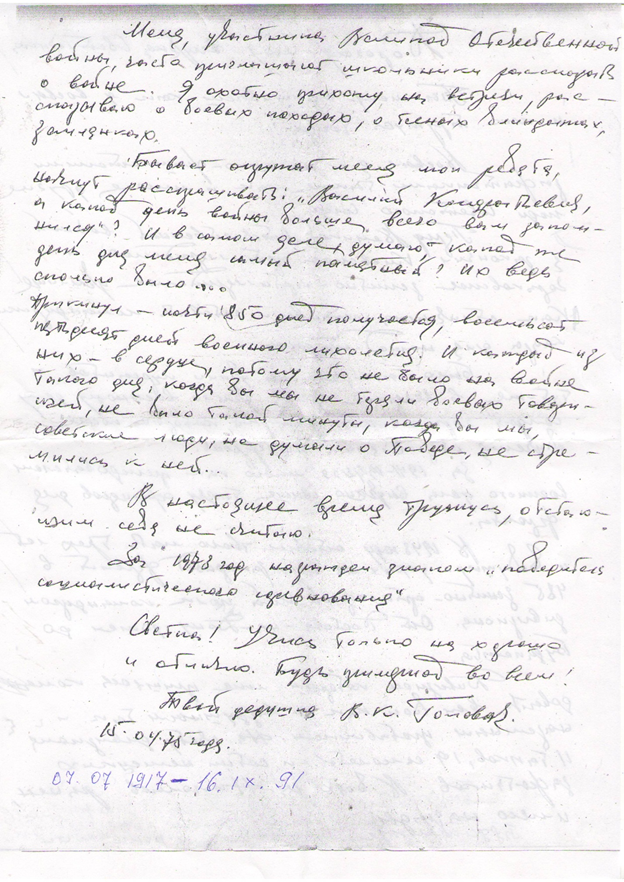 Меня, участника Великой Отечественной
войны, часто приглашают школьники рассказать
о войне. Я охотно прихожу на встречи, рас-
сказываю о боевых походах, о тесных блиндажах,
землянках.
Бывает окружат меня мои ребята,
начнут расспрашивать: „Василий Кондратьевич,
а какой день войны больше всего вам запом-
нился"? И в самом деле, думаю, какой же
день для меня самый памятный? Их ведь
сколько было...
Прикинул – почти 850 дней получается, восемьсот
пятьдесят дней военного лихолетья. И каждый из
них – в сердце, потому что не было на войне
такого дня, когда бы мы не теряли боевых товари-
щей, не было такой минуты, когда бы мы,
советские люди, не думали о Победе, не стре-
мились к ней...
В настоящее время тружусь, отстаю-
щим себя не считаю.
За 1973 год награжден знаком „победитель
социалистического соревнования"
Светка! Учись только на хорошо
и отлично. Будь примерной во всем!
Твой дедушка В. К.
15.04.75 года.
07.07 1917 – 16.IX.91